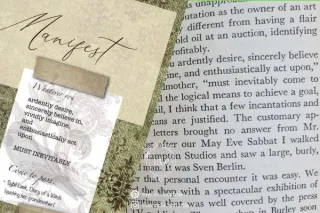 Manifest
Whatever you
ardently desire,
sincerely believe in,
vividly imagine,
and
enthusiastically act
upon,
MUST INEVITABLY
Come to pass
Sybil Leek, Diary of a Witch
(quoting her grandmother)
reputation as the owner of an art
different from having a flair
old oil at an auction, identifying
profitably.
ardently desire, sincerely believe
ine, and enthusiastically act upon,"
mother, "must inevitably come to
the logical means to achieve a goal,
ail, I think that a few incantations and
eans are justified. The customary ap-
letters brought no answer from Mr.
st after our May Eve Sabbat I walked
hampton Studios and saw a large, burly,
man. It was Sven Berlin.
that personal encounter it was easy. We
the shop with a spectacular exhibition of
ntings that was well covered by the press
in Burley soon